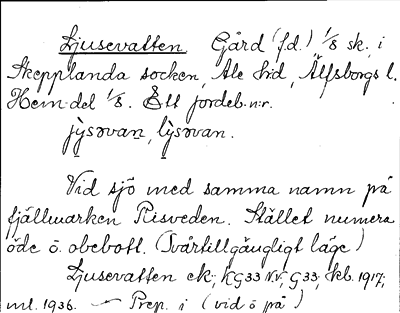 Ljusevatten Gård (f.d.) 1/8 sk. i
Skepplanda socken, Ale hd, Älfsborgs l.
Hem.del 1/8. Ett jordeb.n:r.
jy̠sǝvan̠, ly̠sǝvan.
Vid sjö med samma namn på
fjällmarken Risveden. Stället numera
öde o. obebott. (Svårtillgängligt läge)
Ljusevatten ek; KG33 N.V; G33, kb. 1917;
ml. 1936. – Prep. i (vid o på)